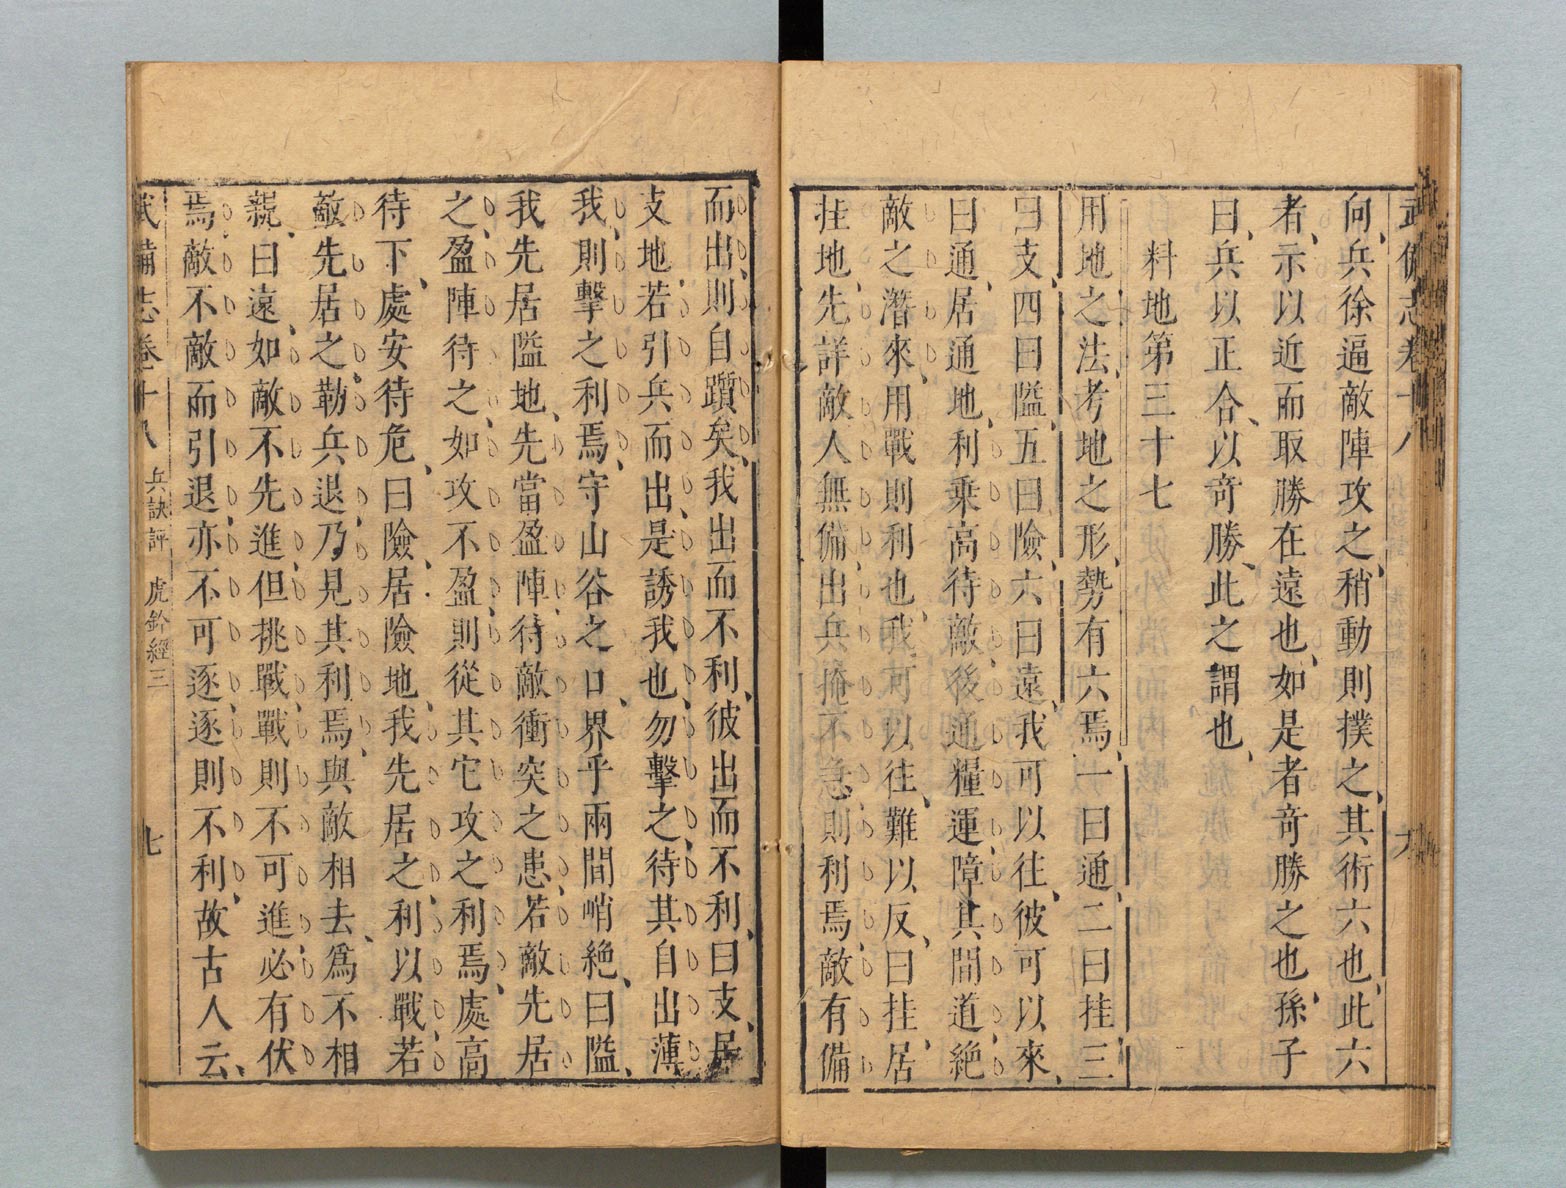 武備志卷十八
六
向、兵徐逼敵陣攻之、稍動則撲之、其術六也、此六
者、示以近而取勝在遠也、如是者竒勝之也、孫子
曰、兵以正合、以竒勝、此之謂也、
料地第三十七
用地之法、考地之形、勢有六焉、一曰通、二曰挂、三
曰支、四曰隘、五曰險、六曰遠、我可以往、彼可以來、
曰通、居通地、利乗高待敵、後通糧運、障其間道、絶
敵之潛來、用戰則利也、我可以往、難以反、曰挂、居
挂地、先詳敵人無備、出兵掩不急、則利焉、敵有備
而出、則自躓矣、我出而不利、彼出而不利、曰支、居
支地、若引兵而出、是誘我也、勿擊之、待其自出薄
我、則擊之利焉、守山谷之口、界乎兩間峭絶、曰隘、
我先居隘地、先當盈陣、待敵衝突之患、若敵先居
之、盈陣待之、如攻不盈、則從其它攻之利焉、處高
待下、處安待危、曰險、居險地、我先居之、利以戰、若
敵先居之、勒兵退、乃見其利焉、與敵相去、爲不相
親、曰遠、如敵不先進、但挑戰、戰則不可進、必有伏
焉、敵不敵而引退、亦不可逐、逐則不利、故古人云、
武備志卷十八 兵訣評 虎鈐經三 七